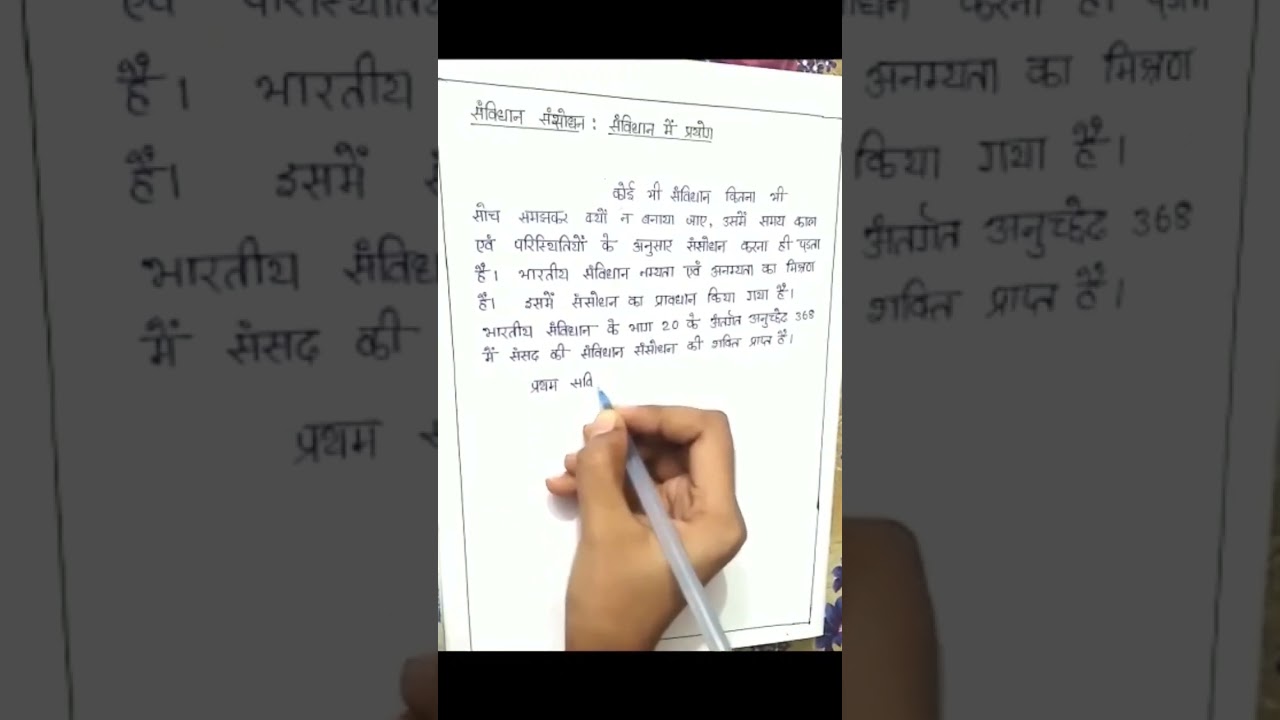 संविधान संसोधन : संविधान में प्रयोग
कोई भी संविधान कितना भी
सोच समझकर क्यों न बनाया जाए, उसमें समय काल
एवं परिस्थितियों के अनुसार संसोधन करना ही पड़ता
है। भारतीय संविधान नम्यता एवं अनम्यता का मिश्रण
है। इसमें संसोधन का प्रावधान किया गया है।
भारतीय संविधान के भाग 20 के अंतर्गत अनुच्छेद 368
में संसद की संविधान संसोधन की शक्ति प्राप्त है।
प्रथम सवि